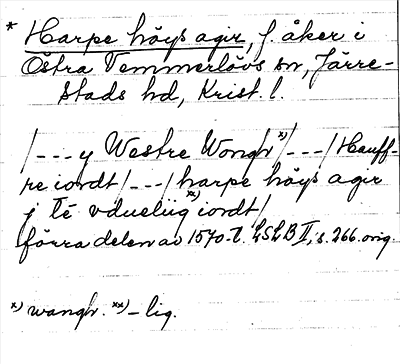 * Harpe höys agir, f. åker i
Östra Vemmerlövs sn, Järre-
stads hd, Krist. l.
/---y Westre Wongh x)/---/ Hauff-
re iordt/---/harpe höys agir
j Te vdueliig xx) iordt/
förra delen av 1570-t. LSLB II, s. 266. orig.
x) wangh. xx) -lig.